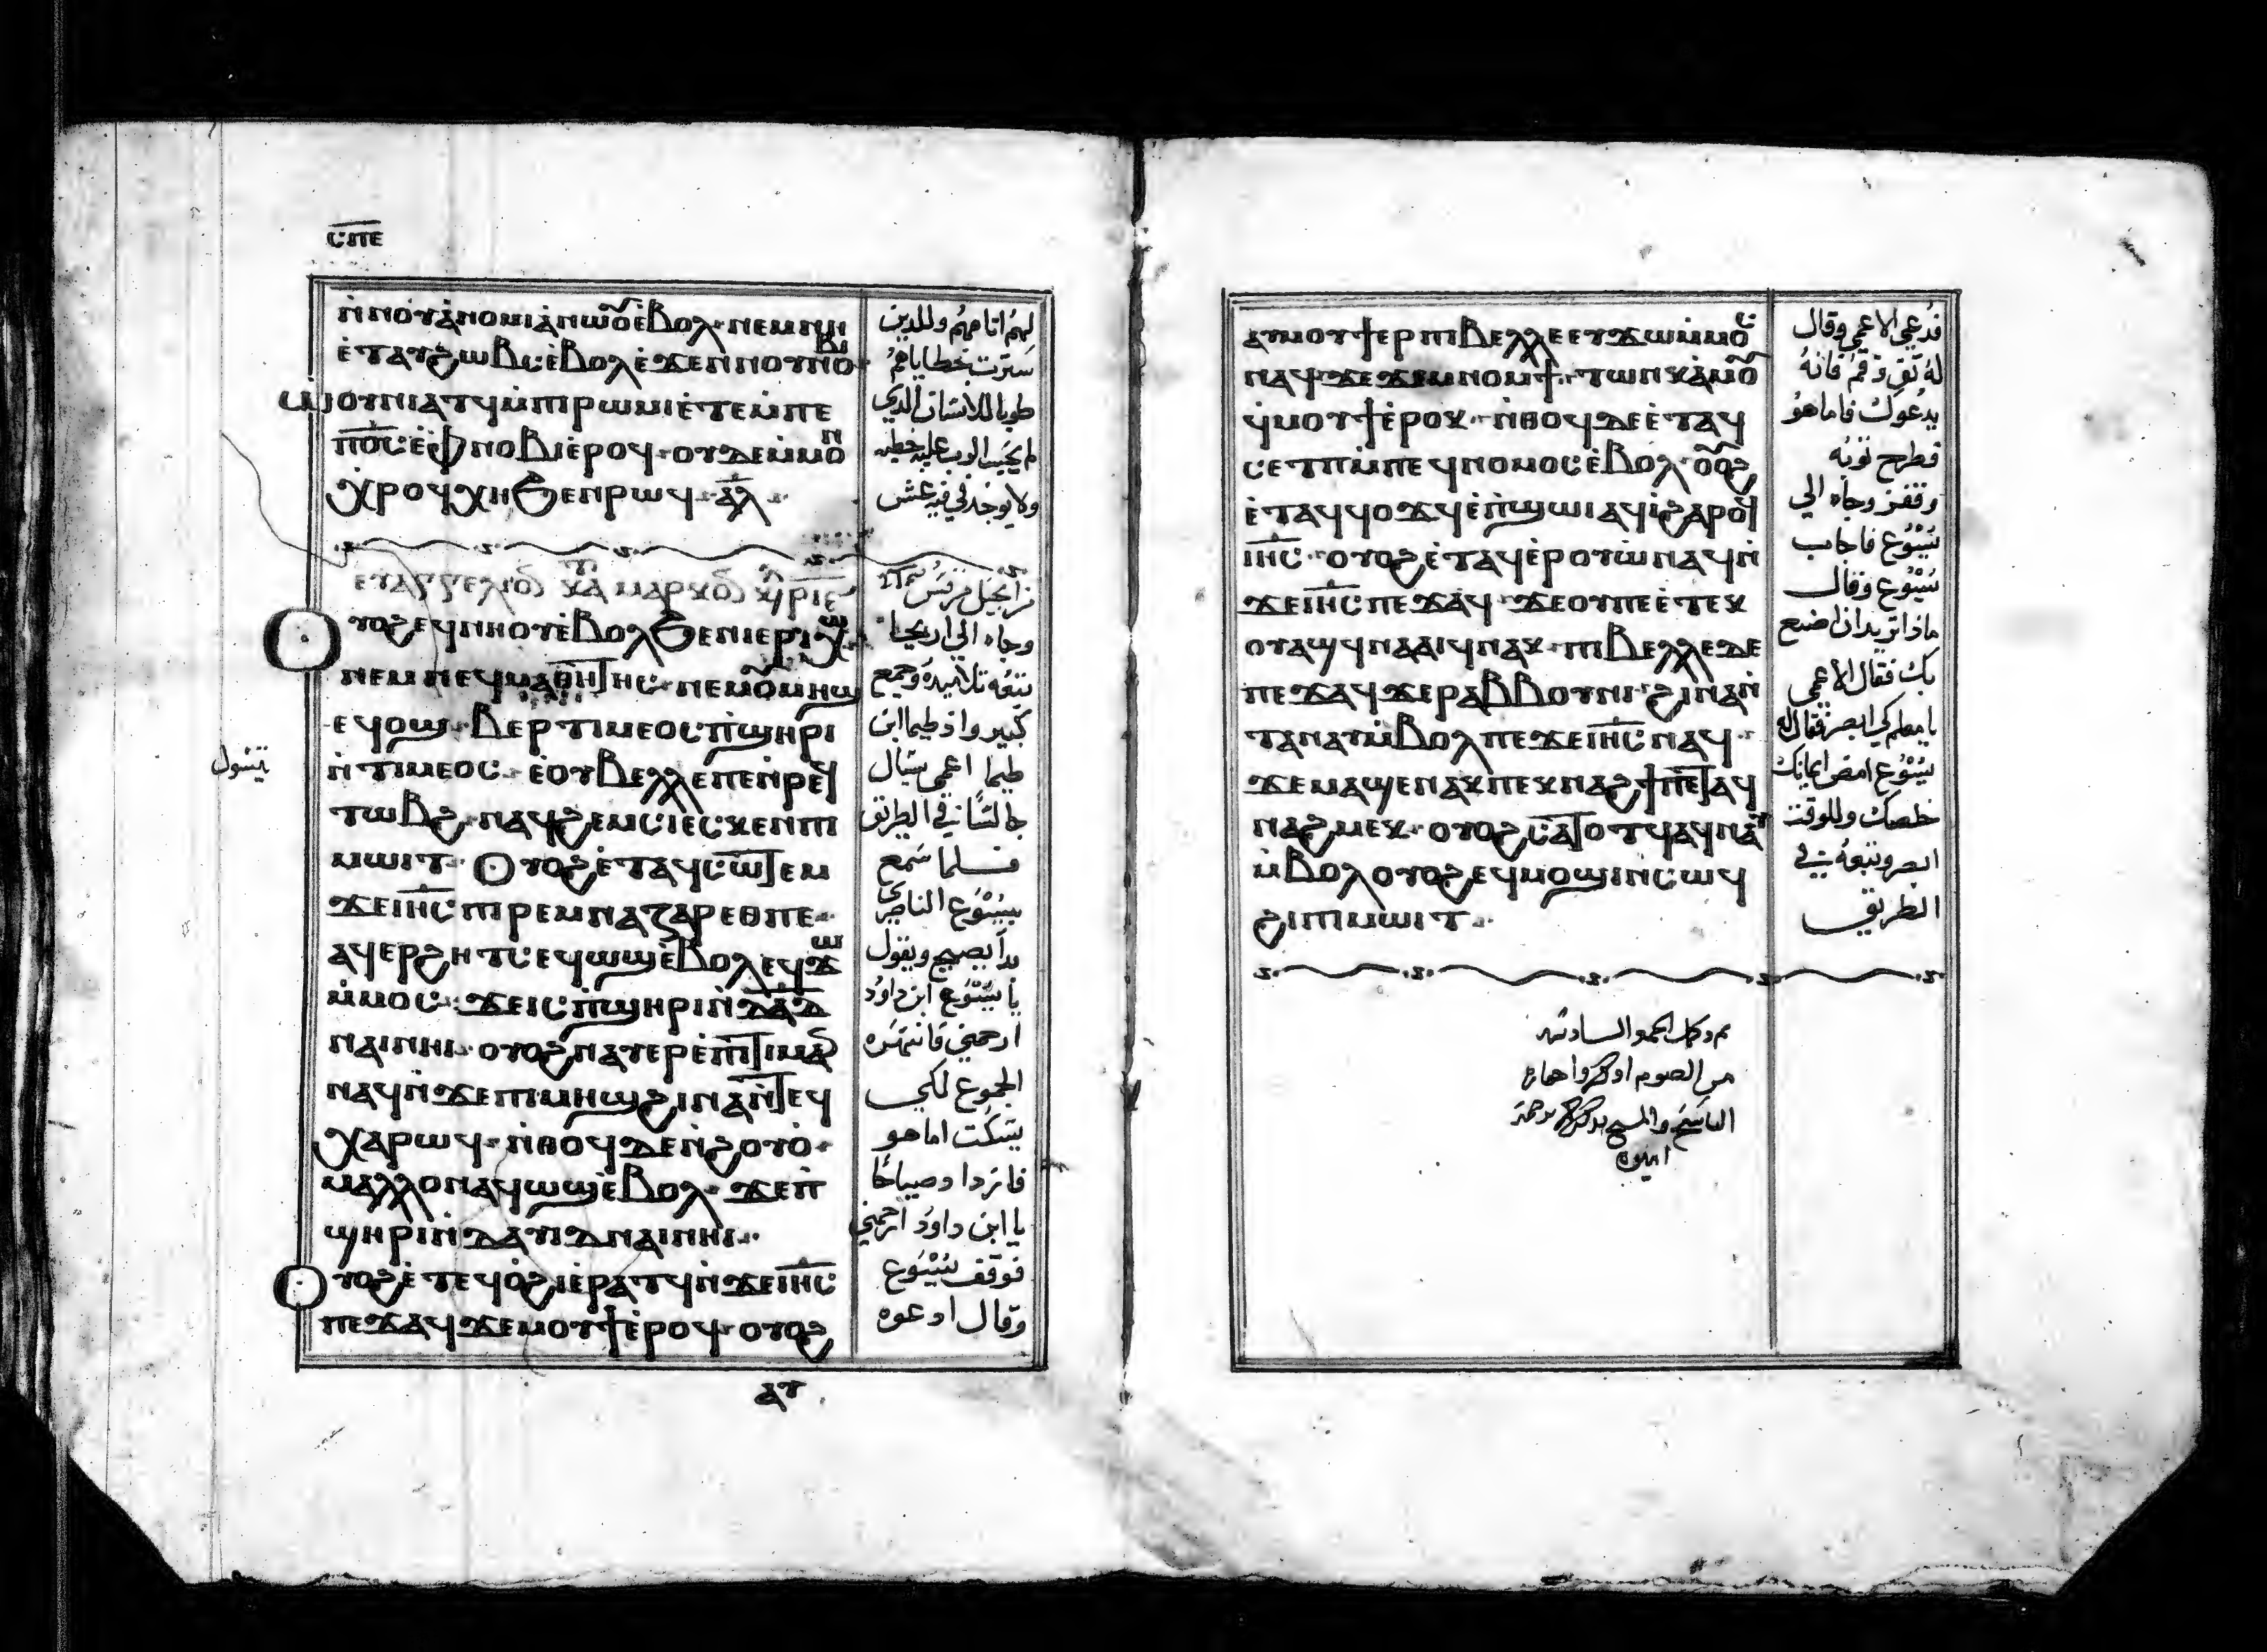 ⲥⲡⲉ
ⲛ̀ⲛⲟⲩⲁ̀ⲛⲟⲙⲓⲁ̀ⲛⲱⲟⲩ ⲉ̀ⲃⲟⲗ· ⲛⲉⲙ ⲛⲏ
ⲉ̀ⲧⲁⲩϩⲱⲃⲥ ⲉ̀ⲃⲟⲗ ⲉ̀ϫⲉⲛ ⲛⲟⲩⲛⲟⲃⲓ
ⲱⲟⲩⲛⲓⲁⲧϥ ⲙ̀ⲡⲓⲣⲱⲙⲓ ⲉ̀ⲧⲉ ⲙ̀ⲡⲉ
ⲡⲟ̅ⲥ̅ ⲉ̀ⲡ ⲛⲟⲃⲓ ⲉ̀ⲣⲟϥ· ⲟⲩⲇⲉ ⲙ̀ⲙⲟⲛ
ⲭⲣⲟϥ ⲭⲏ ϧⲉⲛ ⲣⲱϥ· ⲁ̅ⲗ̅
ⲉⲩⲁⲅⲅⲉⲗⲓⲟⲛ ⲕⲁⲧⲁ ⲙⲁⲣⲕⲟⲛ
ⲟⲩⲟϩ ⲉϥⲛⲏⲟⲩ ⲉ̀ⲃⲟⲗ ϧⲉⲛ ⲓⲉⲣⲓⲭⲱ
ⲛⲉⲙ ⲛⲉϥⲙⲁⲑⲏⲧⲏⲥ· ⲛⲉⲙ ⲟⲩⲙⲏϣ
ⲉϥⲟϣ· ⲃⲉⲣⲧⲓⲙⲉⲟⲥ ⲡ̀ϣⲏⲣⲓ
ⲛ̀ⲧⲓⲙⲉⲟⲥ· ⲉ̀ⲟⲩⲃⲉⲗⲗⲉ ⲡⲉ ⲛ̀ⲣⲉϥ
ⲧⲱⲃϩ· ⲛⲁϥϩⲉⲙⲥⲓ ⲉⲥⲕⲉⲛ ⲡⲓ
ⲙⲱⲓⲧ· ⲟⲩⲟϩ ⲉ̀ⲧⲁϥⲥⲱⲧⲉⲙ
ϫⲉ ⲓⲏ̅ⲥ̅ ⲡⲓⲣⲉⲙⲛⲁⲍⲁⲣⲉⲑ ⲡⲉ·
ⲁϥⲉⲣϩⲏⲧⲥ ⲉϥⲱϣ ⲉ̀ⲃⲟⲗ ⲉϥϫⲱ
ⲙ̀ⲙⲟⲥ· ϫⲉ ⲓⲥ ⲡ̀ϣⲏⲣⲓ ⲛ̀ⲇⲁ̅ⲇ̅
ⲛⲁⲓ ⲛⲏⲓ· ⲟⲩⲟϩ ⲛⲁⲩⲉⲣⲉ̀ⲡⲓⲧⲓⲙⲁⲛ
ⲛⲁϥ ⲛ̀ϫⲉ ⲡⲓⲙⲏϣ ϩⲓⲛⲁ ⲛ̀ⲧⲉϥ
ⲭⲁⲣⲱϥ· ⲛ̀ⲑⲟϥ ⲇⲉ ⲛ̀ϩⲟⲩⲟ̀·
ⲙⲁⲗⲗⲟⲛ ⲁϥⲱϣ ⲉ̀ⲃⲟⲗ· ϫⲉ ⲡ̀
ϣⲏⲣⲓ ⲛ̀ⲇⲁⲩⲓⲇ ⲛⲁⲓ ⲛⲏⲓ·
ⲟⲩⲟϩ ⲉ̀ⲧⲉϥⲟ̀ϩⲓ ⲉ̀ⲣⲁⲧϥ ⲛ̀ϫⲉ ⲓⲏ̅ⲥ̅
ⲡⲉϫⲁϥ ϫⲉ ⲙⲟⲩϯ ⲉ̀ⲣⲟϥ· ⲟⲩⲟϩ
ⲁⲩ
لهم اتامهم وللدين
سترت خطاياهم
طوبا للانسان الدي
لم يحسب الرب عليه خطيه
ولا يوجد في فيه غش
من انجيل مرقس
وجاه الي اريحا
تتبعه تلاميده وجميع
كبير واذ طيما ابن
طيما اعمي سيال
جالسا في الطريق
فلما سمع
بيسوع الناصري
بدا يصيح ويقول
يا يسوع ابن داود
ارحمني فانتهره
الجموع لكي
يسكت اما هو
فازدا وصياحًا
يا ابن داود ارحمني
فوقف يسوع
وقال ادعوه
يتسول
ⲁⲩⲙⲟⲩϯ ⲉⲣ ⲡⲓⲃⲉⲗⲗⲉ ⲉⲩϫⲱ ⲙ̀ⲙⲟⲥ
ⲛⲁϥ ϫⲉ ϫⲉⲙⲛⲟⲙϯ· ⲧⲱⲛⲕ ⲁ̀ⲙⲟⲩ
ϥ̀ⲙⲟⲩϯ ⲉ̀ⲣⲟⲕ· ⲛ̀ⲑⲟϥ ⲇⲉ ⲉ̀ⲧⲁϥ
ⲥⲉⲧ ⲡⲓⲙ̀ⲡⲉϥⲛⲟⲙⲟⲥ ⲉ̀ⲃⲟⲗ· ⲟⲩⲟϩ
ⲉ̀ⲧⲁϥϥⲟϫϥ ⲉ̀ⲡ̀ϣⲱⲓ ⲁϥⲓ̀ ϩⲁⲣⲟϥ
ⲓⲏ̅ⲥ̅· ⲟⲩⲟϩ ⲉ̀ⲧⲁϥⲉ̀ⲣⲟⲩⲱ̀ ⲛⲁϥ ⲛ̀
ϫⲉ ⲓⲏ̅ⲥ̅ ⲡⲉϫⲁϥ· ϫⲉ ⲟⲩ ⲡⲉ ⲉ̀ⲧⲉⲕ
ⲟⲩⲁϣϥ ⲛⲁⲁⲓϥ ⲛⲁⲕ· ⲡⲓⲃⲉⲗⲗⲉ ⲇⲉ
ⲡⲉϫⲁϥ ϫⲉ ⲣⲁⲃⲃⲟⲩⲛⲓ· ϩⲓⲛⲁ ⲛ̀
ⲧⲁⲛⲁⲩ ⲙ̀ⲃⲟⲗ ⲡⲉϫⲉ ⲓⲏ̅ⲥ̅ ⲛⲁϥ·
ϫⲉ ⲙⲁϣⲉⲛⲁⲕ ⲡⲉⲕⲛⲁϩϯ ⲡⲉⲧⲁϥ
ⲛⲁϩⲙⲉⲕ· ⲟⲩⲟϩ ⲥⲁⲧⲟⲧϥ ⲁϥⲛⲁⲩ
ⲙ̀ⲃⲟⲗ ⲟⲩⲟϩ ⲉϥⲙⲟϣⲓ ⲛ̀ⲥⲱϥ
ϩⲓ ⲡⲓⲙⲱⲓⲧ·
فدعي الاعمي وقال
له تق وقم فانه
يدعوك فاما هو
فطرح توبه
وقفز وجاه الي
يسوع فاجاب
يسوع وقال
ماذا تريد ان اصنع
بك فقال الاعمي
يا معلم كي ابصر فقال له
يسوع امض ايمانك
خلصك وللوقت
ابصر وتبعه في
الطريق
تم وكمل الجمعه السادسه
من الصوم
امين